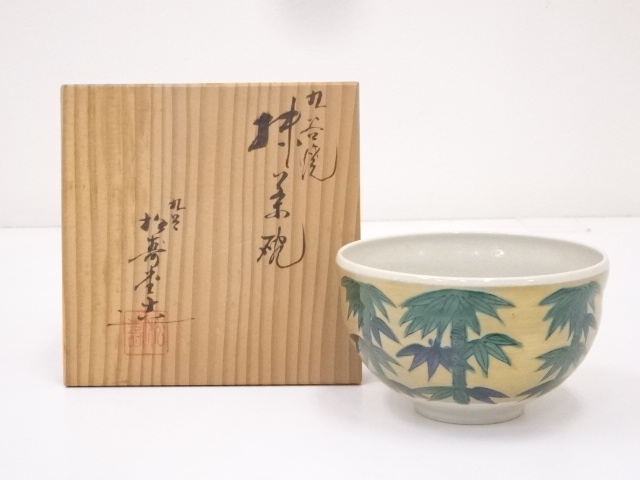 九谷焼
抹茶碗
九谷
松寿堂